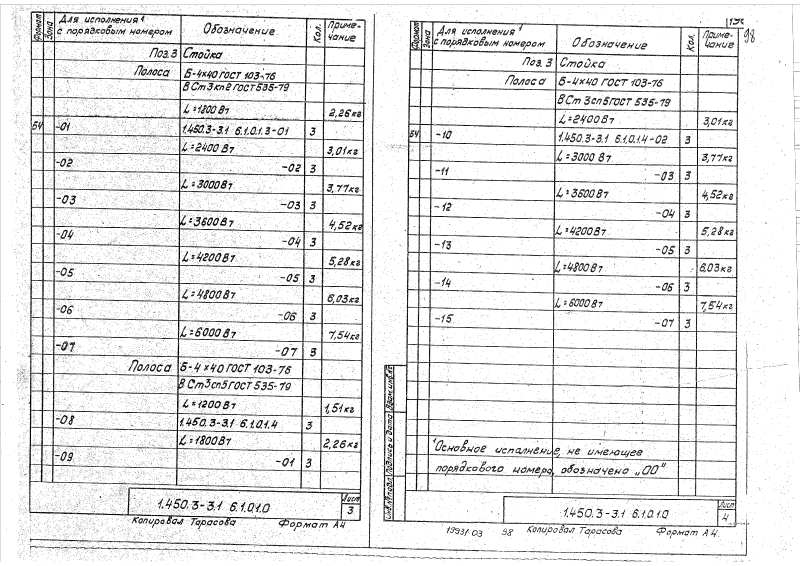 Формат Зона Для исполнения¹ с порядковым номером Обозначение Кол. Приме-чание
Поз.3 Стойка
Полоса Б-4×40 ГОСТ 103-76
ВСт3кп2 ГОСТ 535-79
L=1800Вт 2,26кг
54 -01 1.450.3-3.1 6.1.0.1.3-01 3
L=2400Вт 3,01кг
-02 -02 3
L=3000Вт 3,77кг
-03 -03 3
L=3600Вт 4,52кг
-04 -04 3
L=4200Вт 5,28кг
-05 -05 3
L=4800Вт 6,03кг
-06 -06 3
L=6000Вт 7,54кг
-07 -07 3
Полоса Б-4×40 ГОСТ 103-76
ВСт3сп5 ГОСТ 535-79
L=1200Вт 1,51кг
-08 1.450.3-3.1 6.1.0.1.4 3
L=1800Вт 2,26кг
-09 -01 3
1.450.3-3.1 6.1.01.0 Лист 3
Копировал Тарасова Формат А4
98
Формат Зона Для исполнения¹ с порядковым номером Обозначение Кол. Приме-чание
Поз.3 Стойка
Полоса Б-4×40 ГОСТ 103-76
ВСт3сп5 ГОСТ 535-79
L=2400Вт 3,01кг
54 -10 1.450.3-3.1 6.1.0.1.4-02 3
L=3000Вт 3,77кг
-11 -03 3
L=3600Вт 4,52кг
-12 -04 3
L=4200Вт 5,28кг
-13 -05 3
L=4800Вт 6,03кг
-14 -06 3
L=6000Вт 7,54кг
-15 -07 3
¹Основное исполнение, не имеющее
порядкового номера, обозначено „00"
Инв.№подл. Подпись и дата Взам.инв.№
1.450.3-3.1 6.1.0.1.0 Лист 4
19931-03 98 Копировал Тарасова Формат А4